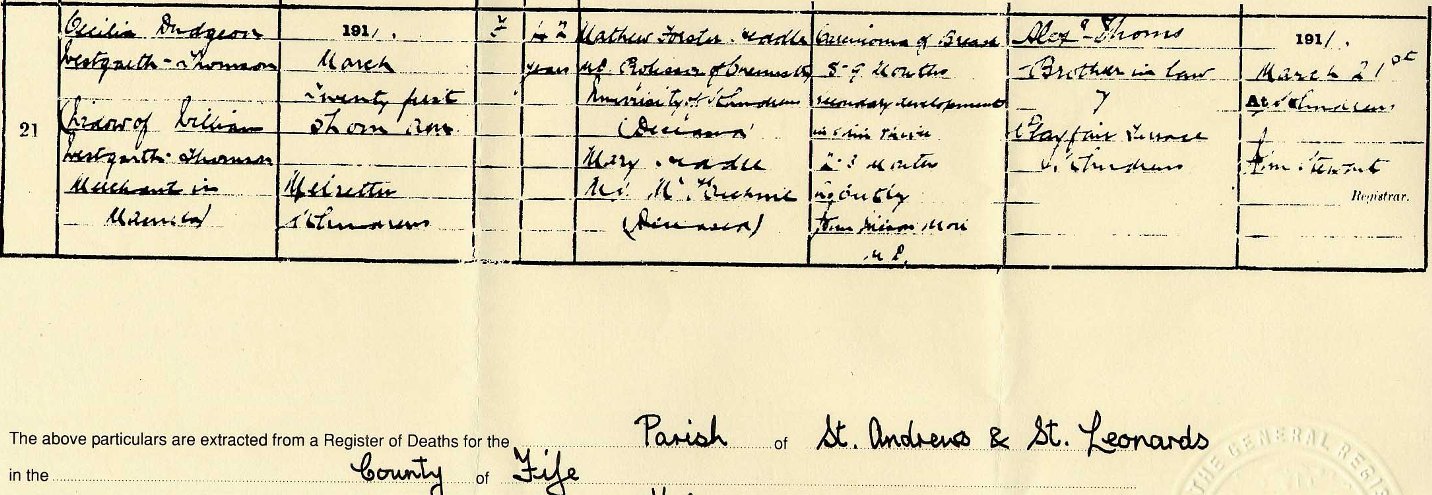 21
Cecilia Dudgeon
Westgarth-Thomson
(Widow of William
Westgarth-Thomson
Merchant in
Manila)
1911.
March
Twenty first
St Andrews
42
years
Mathew Forster Heddle
M.D. Professor of Chemistry
University of St Andrews
(Deceased)
Mary Heddle
M.S.
(Deceased)
Carcinoma of Breast
8-9 Months
secondary development
2-3 Months
M.D.
Alexr Thoms
Brother in law
7
Playfair Terrace
St Andrews
1911.
March 21st
At St Andrews
Registrar.
The above particulars are extracted from a Register of Deaths for the Parish of St. Andrews & St. Leonards
in the County of Fife
THE GENERAL REGI